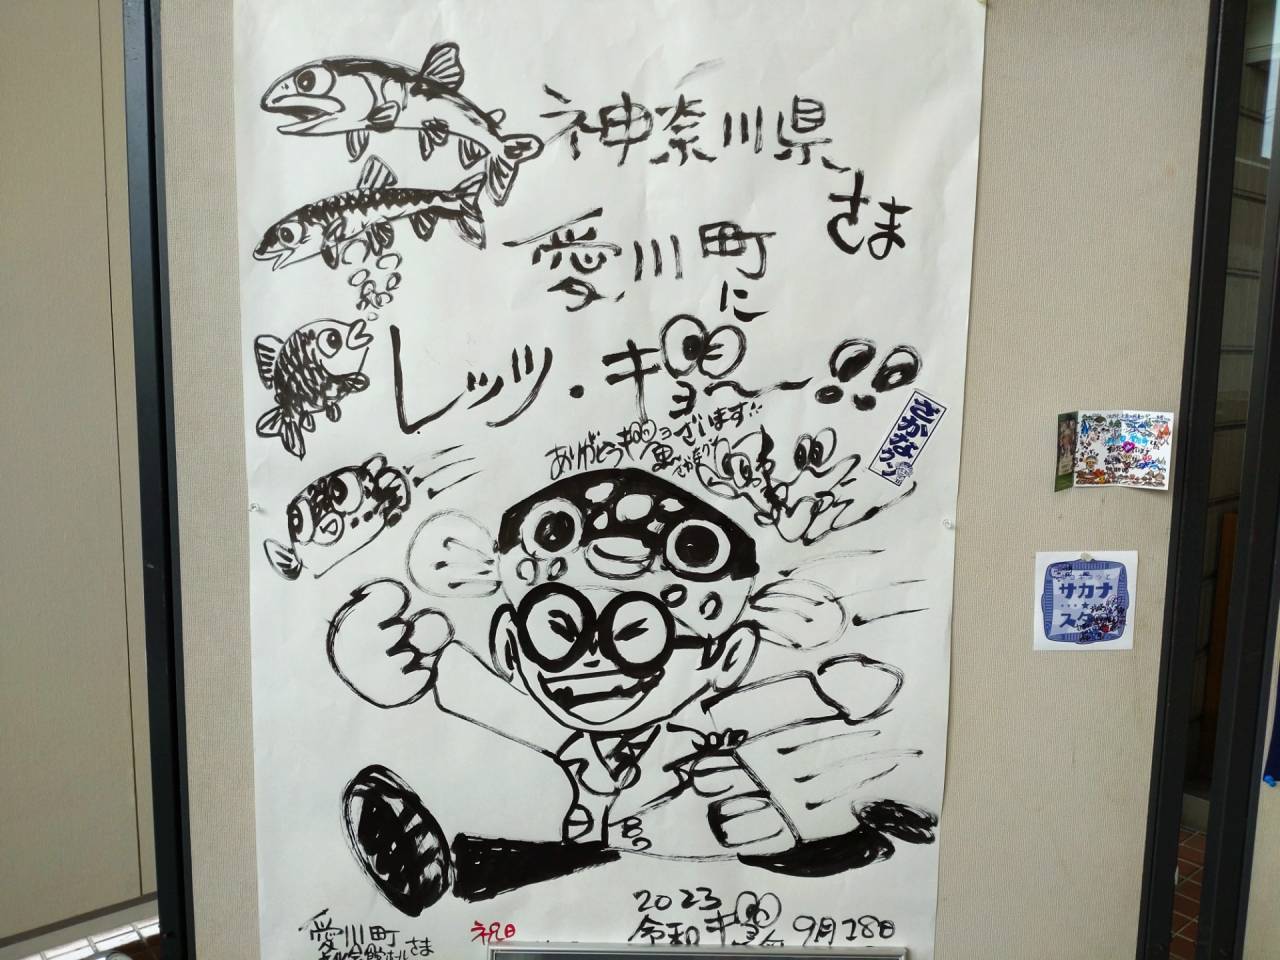 神奈川県
さま
愛川町
に
レッツ・ギョ〜!!
ありがとうギョざいます!!
さかなクン
サカナ
スター
2023
令和ギョ年 9月18日
祝日
愛川町
文化会館ホールさま